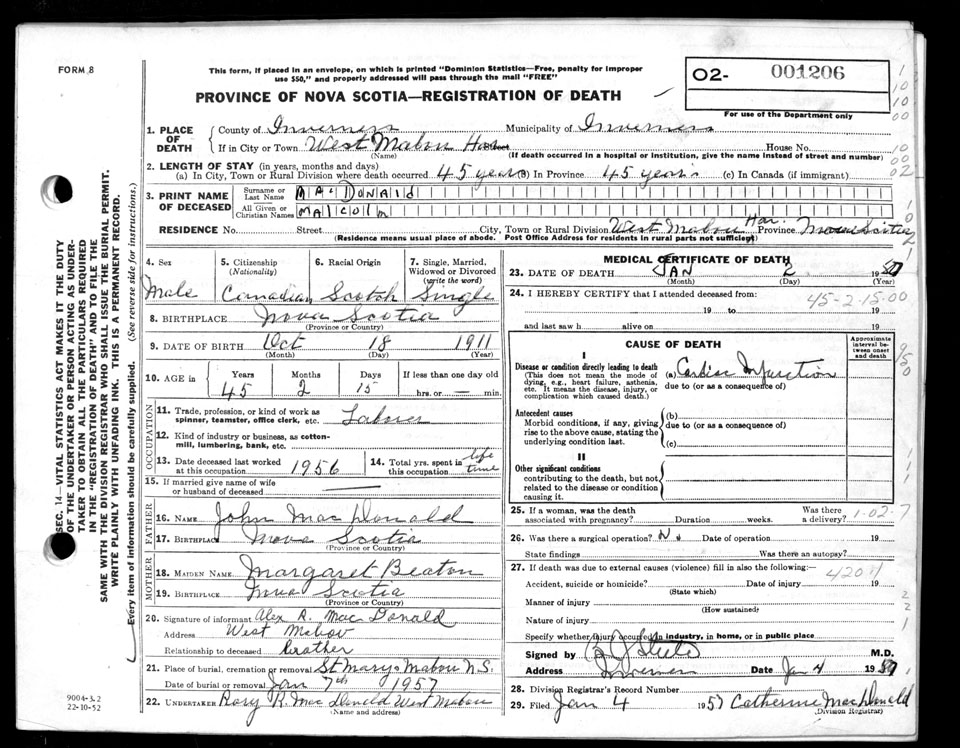 FORM 8
This form, if placed in an envelope, on which is printed "Dominion Statistics—Free, penalty for improper
use $50," and properly addressed will pass through the mail "FREE"
02- 001206
PROVINCE OF NOVA SCOTIA—REGISTRATION OF DEATH
For use of the Department only
1. PLACE OF DEATH
County of Inverness Municipality of Inverness
If in City or Town West Mabou House No.
(Name) (If death occurred in a hospital or institution, give the name instead of street and number)
2. LENGTH OF STAY (in years, months and days)
(a) In City, Town or Rural Division where death occurred 45 years (B) In Province 45 years (c) In Canada (if immigrant)
3. PRINT NAME OF DECEASED
Surname or Last Name MacDonald
All Given or Christian Names Malcolm
RESIDENCE No. Street City, Town or Rural Division West Mabou Har. Province Nova Scotia
(Residence means usual place of abode. Post Office Address for residents in rural parts not sufficient)
4. Sex
Male
5. Citizenship
(Nationality)
Canadian
6. Racial Origin
Scotch
7. Single, Married,
Widowed or Divorced
(write the word)
Single
8. BIRTHPLACE Nova Scotia
(Province or Country)
9. DATE OF BIRTH Oct 18 1911
(Month) (Day) (Year)
10. AGE in Years Months Days If less than one day old
45 2 15 hrs. or min.
OCCUPATION
11. Trade, profession, or kind of work as
spinner, teamster, office clerk, etc. Labour
12. Kind of industry or business, as cotton-
mill, lumbering, bank, etc.
13. Date deceased last worked
at this occupation 1956
14. Total yrs. spent in
this occupation life time
15. If married give name of wife
or husband of deceased —
FATHER
16. NAME John MacDonald
17. BIRTHPLACE Nova Scotia
(Province or Country)
MOTHER
18. MAIDEN NAME Margaret Beaton
19. BIRTHPLACE Nova Scotia
(Province or Country)
20. Signature of informant Alex R. MacDonald
Address West Mabou
Relationship to deceased brother
21. Place of burial, cremation or removal St Marys Mabou N.S.
Date of burial or removal Jan 7th 1957
22. UNDERTAKER Rory R. MacDonald West Mabou
(Name and address)
MEDICAL CERTIFICATE OF DEATH
23. DATE OF DEATH JAN 2 1957
(Month) (Day) (Year)
24. I HEREBY CERTIFY that I attended deceased from:
45-2-15-00
19 to 19
and last saw h alive on 19
CAUSE OF DEATH
Approximate interval between onset and death
I
Disease or condition directly leading to death
(This does not mean the mode of
dying, e.g., heart failure, asthenia,
etc. It means the disease, injury, or
complication which caused death.)
(a) Cardiac Infarction
due to (or as a consequence of)
Antecedent causes
Morbid conditions, if any, giving
rise to the above cause, stating the
underlying condition last.
(b)
due to (or as a consequence of)
(c)
II
Other significant conditions
contributing to the death, but not
related to the disease or condition
causing it.
25. If a woman, was the death
associated with pregnancy? Duration weeks. Was there
a delivery?
1-02-7
26. Was there a surgical operation? No Date of operation 19
State findings Was there an autopsy?
27. If death was due to external causes (violence) fill in also the following:—
Accident, suicide or homicide? Date of injury 19
(State which)
Manner of injury
(How sustained)
Nature of injury
Specify whether injury occurred in industry, in home, or in public place
Signed by M.D.
Address Inverness Date Jan 4 1957
28. Division Registrar's Record Number
29. Filed Jan 4 1957 Catherine MacDonald
(Division Registrar)
SEC. 14—VITAL STATISTICS ACT MAKES IT THE DUTY
OF THE UNDERTAKER OR PERSON ACTING AS UNDER-
TAKER TO OBTAIN ALL THE PARTICULARS REQUIRED
IN THE "REGISTRATION OF DEATH" AND TO FILE THE
SAME WITH THE DIVISION REGISTRAR WHO SHALL ISSUE THE BURIAL PERMIT.
WRITE PLAINLY WITH UNFADING INK. THIS IS A PERMANENT RECORD.
Every item of information should be carefully supplied. (See reverse side for instructions.)
9004-3.2
22-10-52